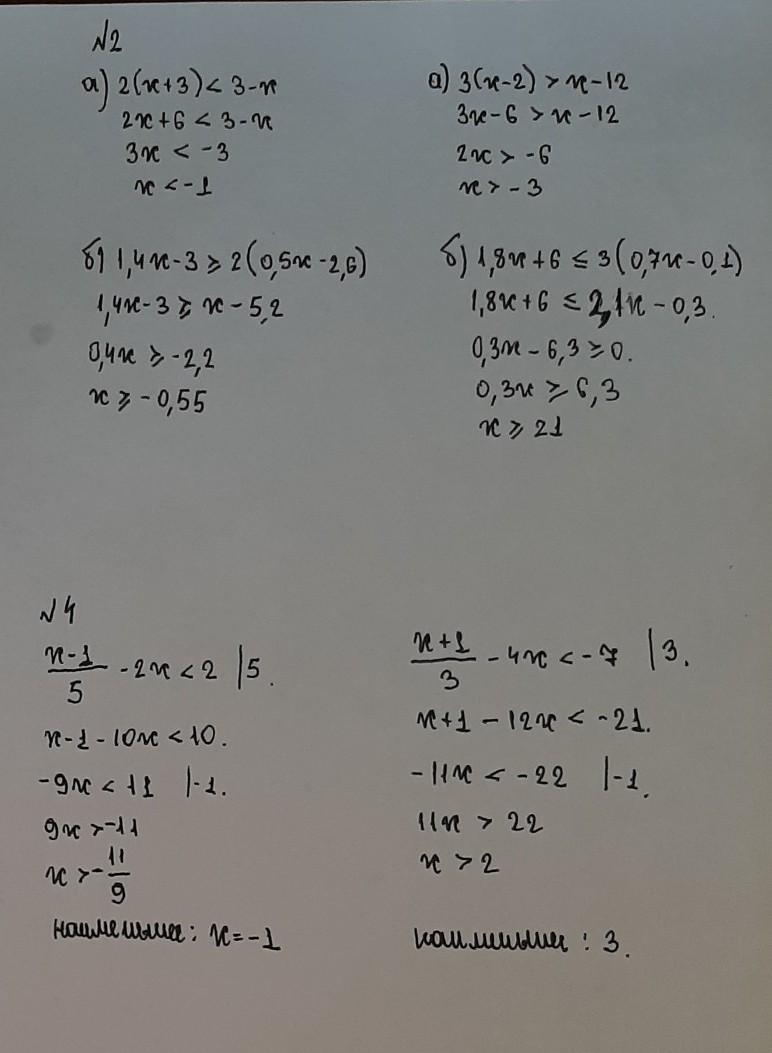 №2
а) 2(x+3) < 3-x
2x+6 < 3-x
3x < -3
x < -1
а) 3(x-2) > x-12
3x-6 > x-12
2x > -6
x > -3
б) 1,4x-3 ⩾ 2(0,5x-2,6)
1,4x-3 ⩾ x-5,2
0,4x ⩾ -2,2
x ⩾ -0,55
б) 1,8x+6 ≤ 3(0,7x-0,1)
1,8x+6 ≤ 2,1x-0,3.
0,3x-6,3 ⩾ 0.
0,3x ⩾ 6,3
x ⩾ 21
№4
(x-1)/5 - 2x < 2 |5.
x-1-10x < 10.
-9x < 11 |-1.
9x > -11
x > -11/9
наименьшее: x=-1
(x+1)/3 - 4x < -7 |3.
x+1-12x < -21.
-11x < -22 |-1.
11x > 22
x > 2
наименьшее: 3.